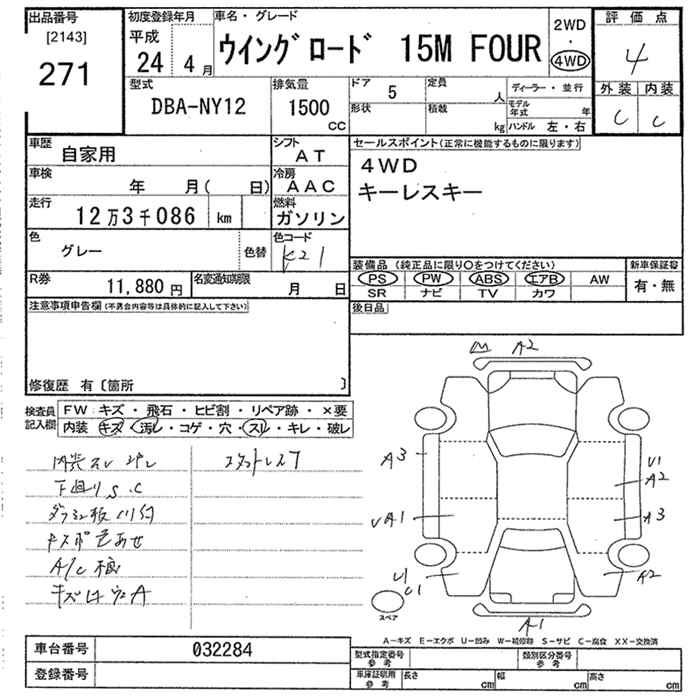 出品番号
[2143]
271
初度登録年月
平成
24年 4月
車名・グレード
ウイングロード 15M FOUR
2WD
・
4WD
評価点
4
外装 内装
C C
型式
DBA-NY12
排気量
1500
CC
ドア 5
定員 人
形状
積載 kg
ディーラー・並行
モデル年式 年
ハンドル 左・右
車歴
自家用
シフト
AT
セールスポイント(正常に機能するものに限ります)
4WD
キーレスキー
車検
年 月( 日)
冷房
AAC
走行
12万3千086 km
燃料
ガソリン
色
グレー
色替
色コード
K21
R券
11,880円
名変通知期限
月 日
装備品(純正品に限り○をつけてください)
PS PW ABS エアB AW
SR ナビ TV カワ
新車保証書
有・無
注意事項申告欄(不具合内容等は具体的に記入して下さい)
後日品
修復歴 有〔箇所 〕
検査員記入欄
FW:キズ・飛石・ヒビ割・リペア跡・×要
内装 キズ・汚レ・コゲ・穴・スレ・キレ・破レ
内装スレ ヨゴレ
スタットレス7
下廻りS.C
A/C
A2
A3
U1
A2
A3
UA1
U1
A2
A1
スペア
A-キズ E-エクボ U-凹み W-補修跡 S-サビ C-腐食 XX-交換済
車台番号
032284
登録番号
型式指定番号
参考
類別区分番号
参考
車庫証明用
参考
長さ cm
幅 cm
高さ cm